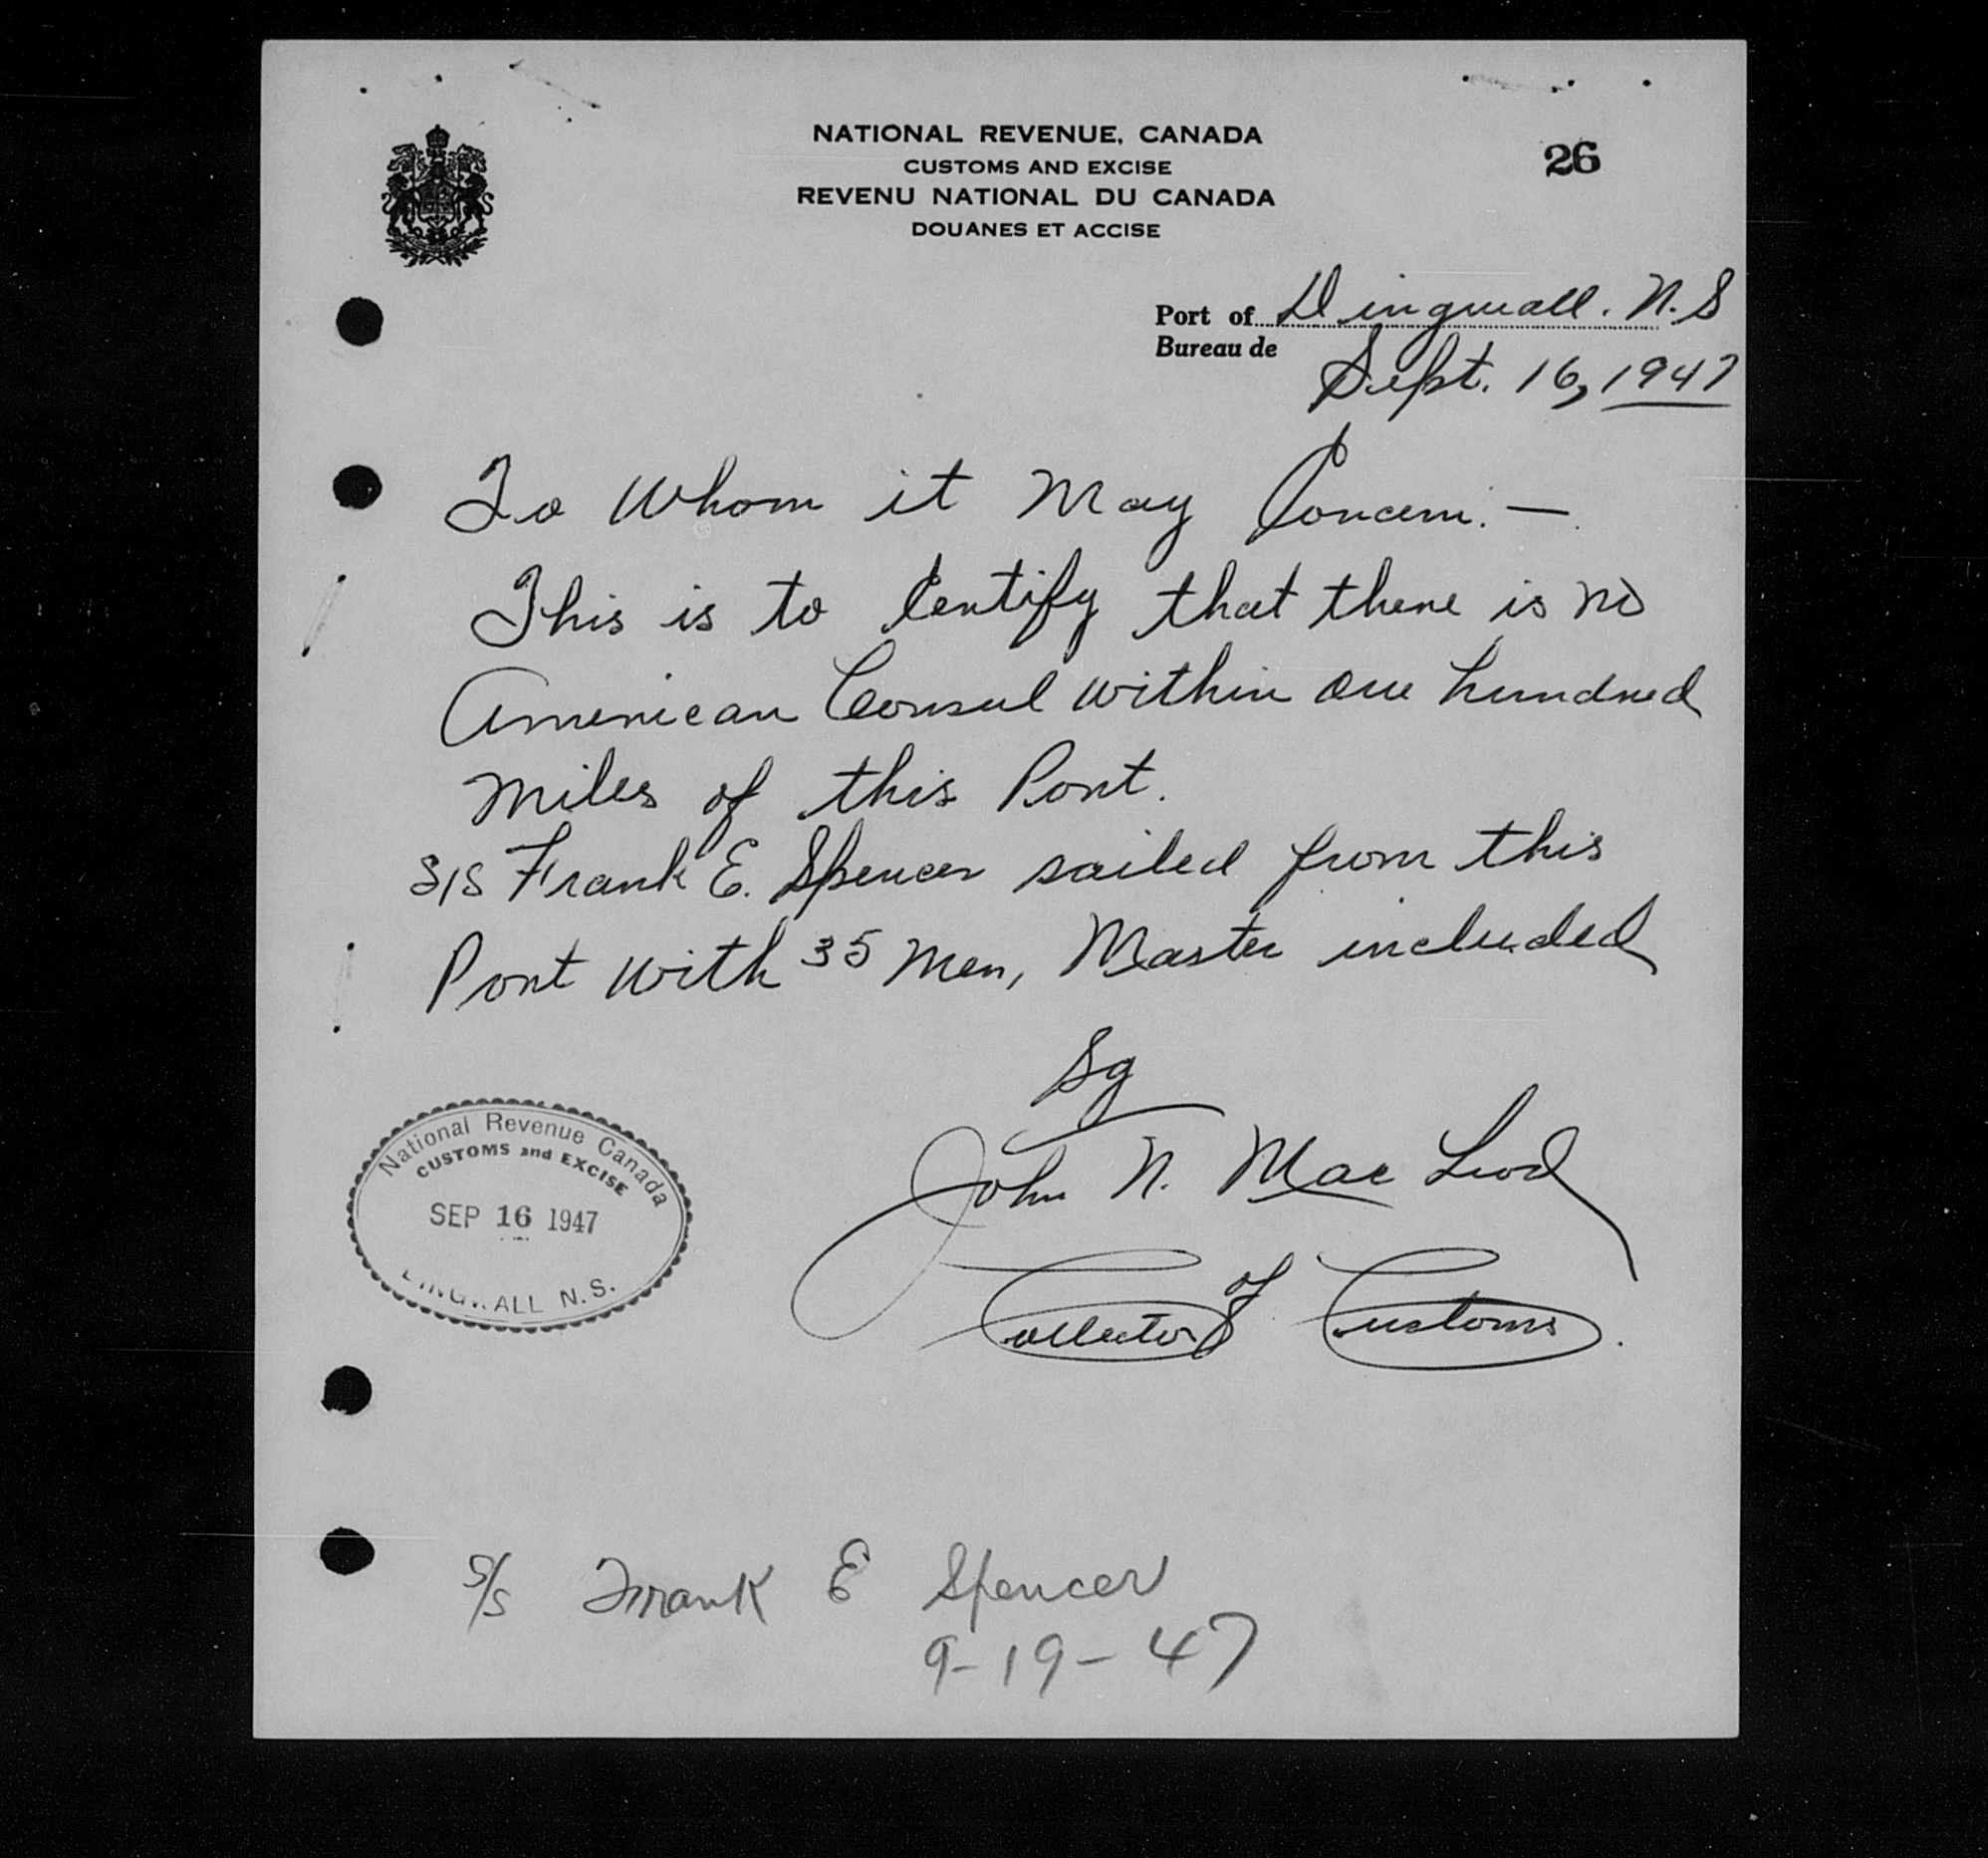 NATIONAL REVENUE, CANADA
CUSTOMS AND EXCISE
REVENU NATIONAL DU CANADA
DOUANES ET ACCISE
26
Port of Dingwall. N.S
Bureau de
Sept. 16, 1947
To Whom it May Concern. —
This is to Certify that there is no
American Consul within one hundred
miles of this Port.
S/S Frank E. Spencer sailed from this
Port with 35 men, Master included
Sg
John N. MacLeod
Collector of Customs.
National Revenue Canada
CUSTOMS and EXCISE
SEP 16 1947
DINGWALL N.S.
S/S Frank E Spencer
9-19-47